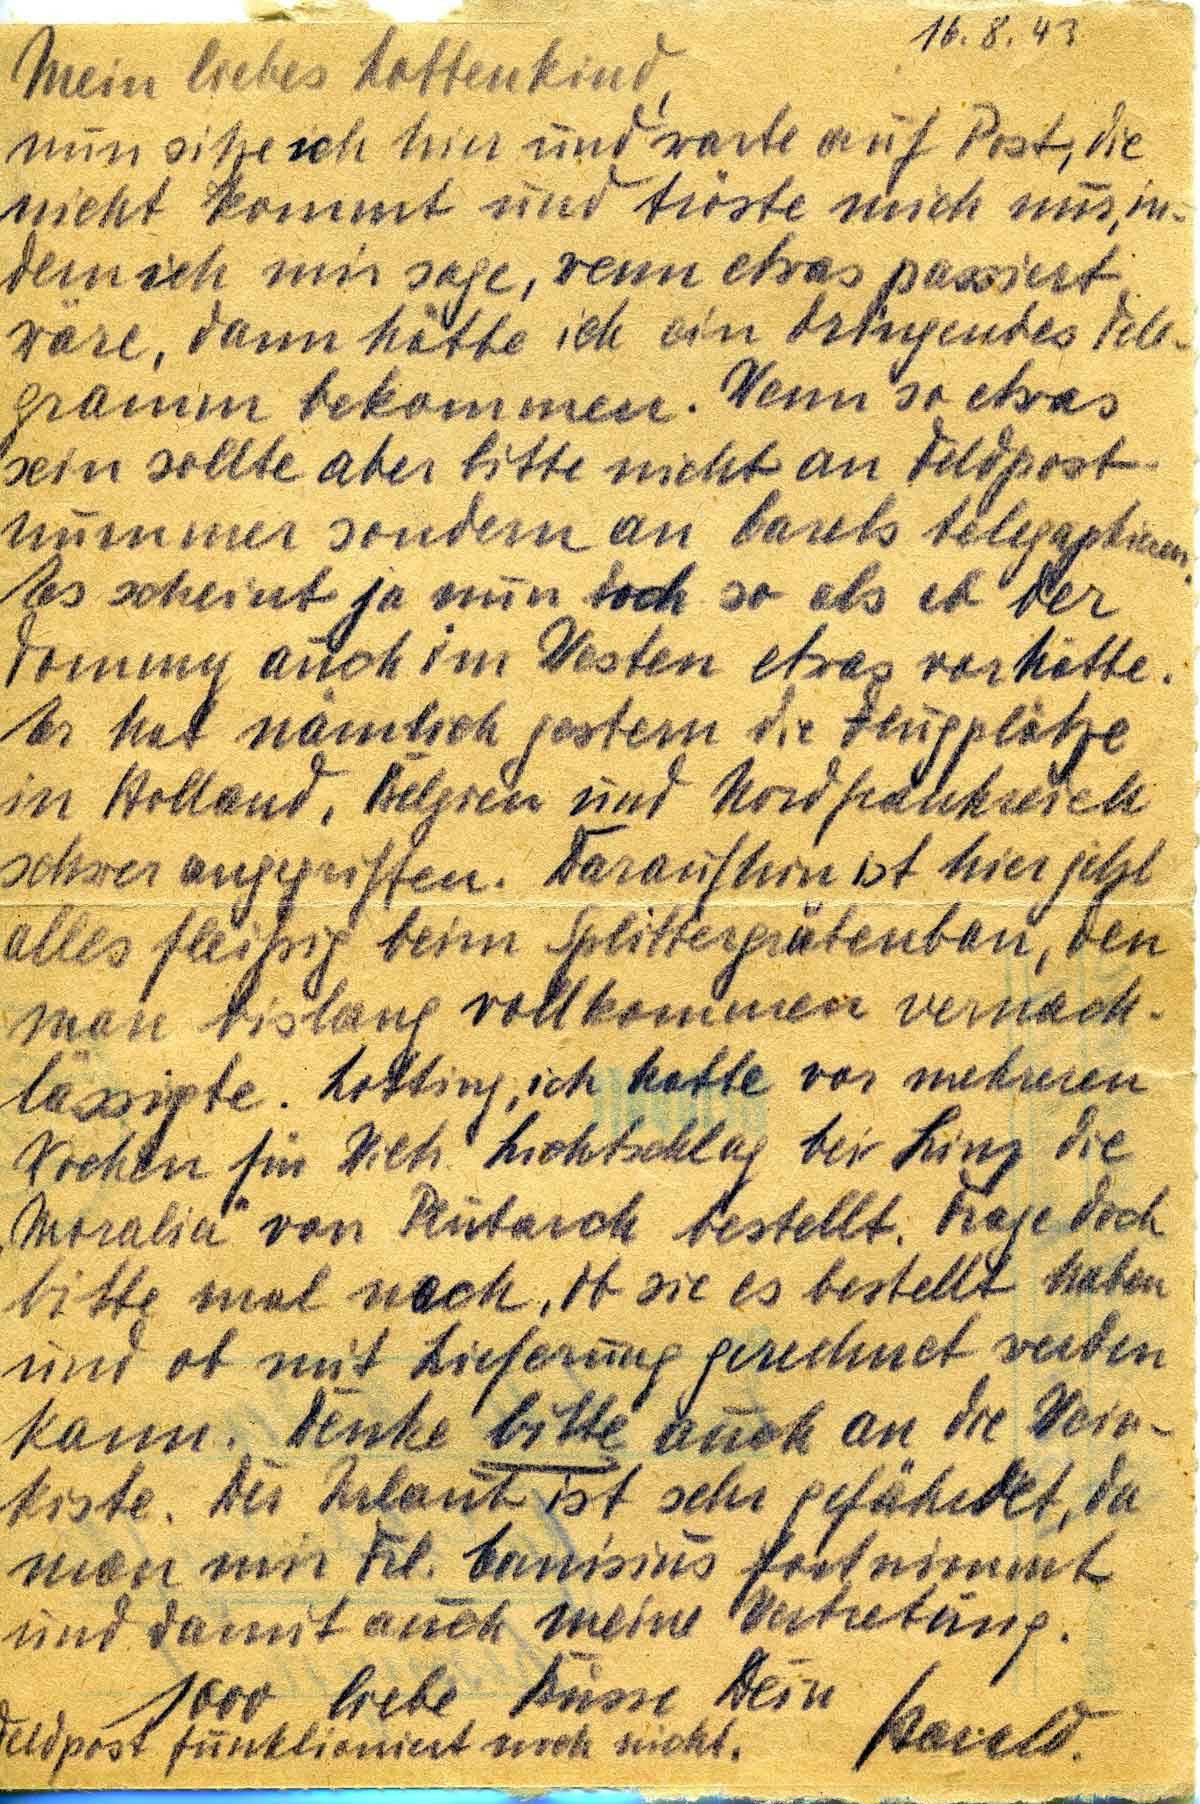 16.8.43
Mein liebes Lottenkind,
nun sitze ich hier und warte auf Post, die
nicht kommt und tröste mich nur, in-
dem ich mir sage, wenn etwas passiert
wäre, dann hätte ich ein dringendes Tele-
gramm bekommen. Wenn so etwas
sein sollte aber bitte nicht an Feldpost-
nummer sondern an Carels telegaphieren.
Es scheint ja nun doch so als ob der
Tommy auch im Westen etwas vorhätte.
Er hat nämlich gestern die Flugplätze
in Holland, Belgien und Nordfrankreich
schwer angegriffen. Daraufhin ist hier jetzt
alles fleißig beim Splittergräbenbau, den
man bislang vollkommen vernach-
lässigte. Lotting, ich hatte vor mehreren
Wochen für Wilh. Lichtschlag bei Linz die
„Moralia" von Plutarch bestellt. Frage doch
bitte mal nach, ob sie es bestellt haben
und ob mit Lieferung gerechnet werden
kann. Denke bitte auch an die Wein-
kiste. Der Urlaub ist sehr gefährdet, da
man mir Frl. Canisius fortnimmt
und damit auch meine Vertretung.
1000 liebe Küsse Dein
Harald.
Feldpost funktioniert noch nicht.